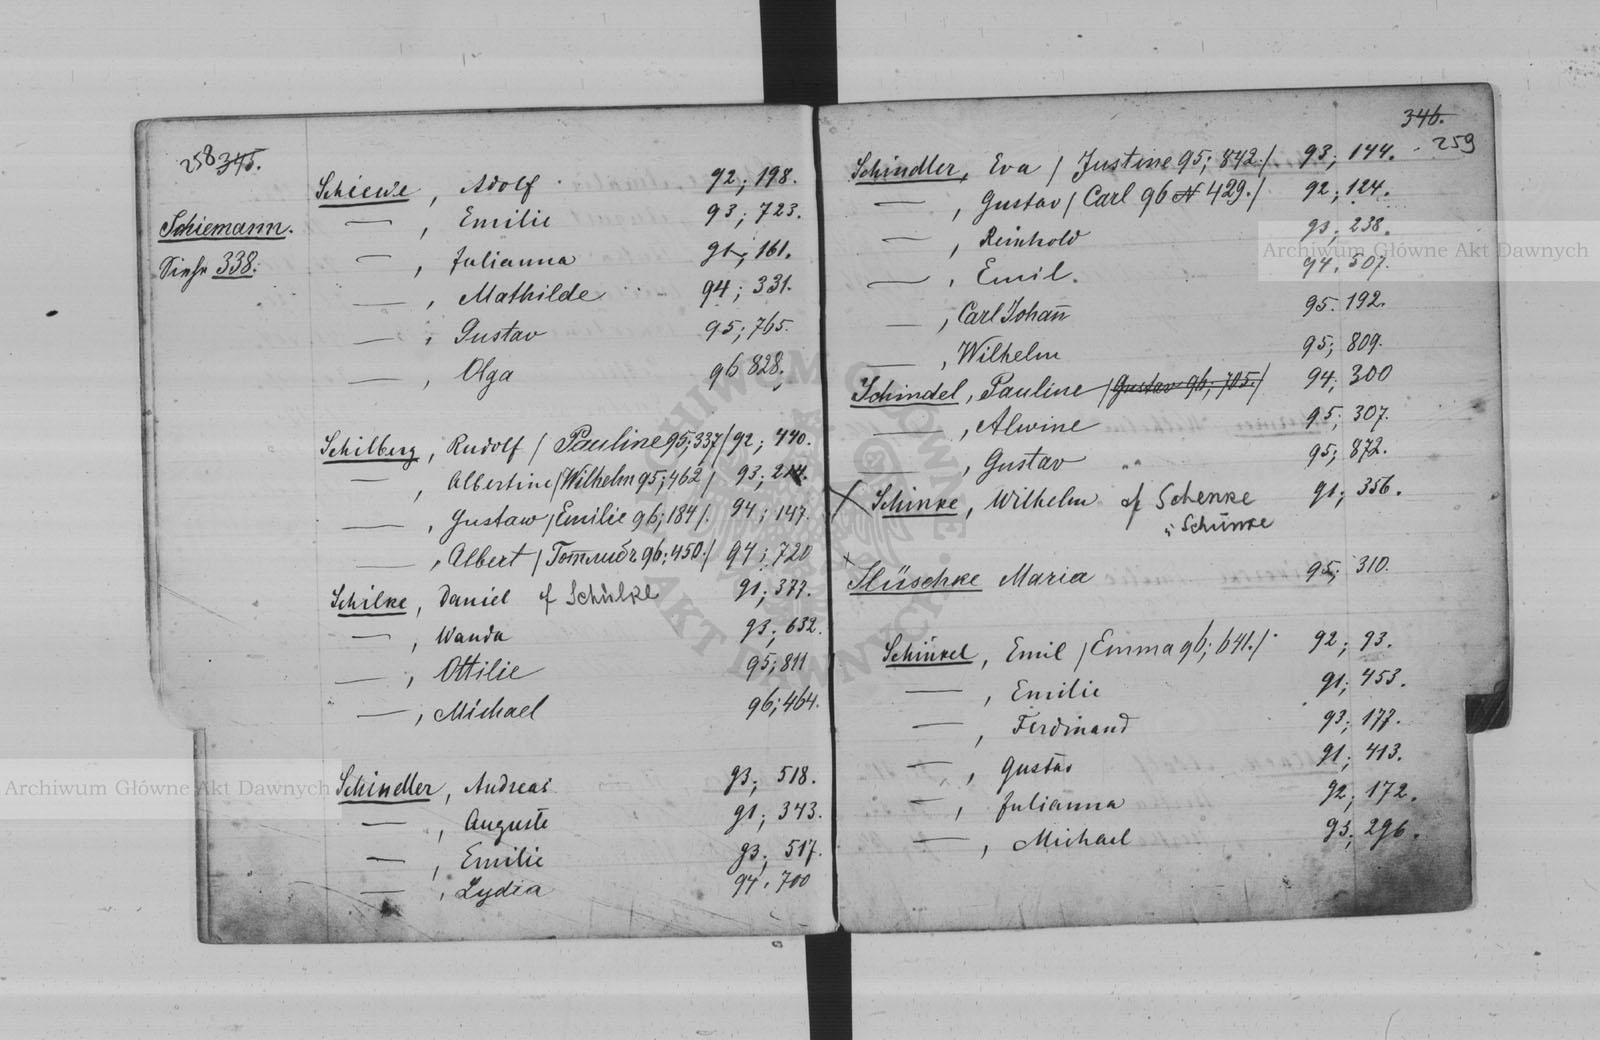 258 345.
Schiemann.
Siehe 338.
Schiewe, Adolf 92; 198.
— , Emilie 93; 723.
— , Julianna 91; 161.
— , Mathilde 94; 331.
— , Gustav 95; 765.
— , Olga 96 828.
Schilberg, Rudolf / Pauline 95; 337 / 92; 440.
— , Albertine / Wilhelm 95; 462 / 93; 214.
— , Gustaw / Emilie 96; 184 /. 94; 147.
— , Albert / Готлиб 96; 450. / 94; 720
Schilke, Daniel cf Schülke 91; 377.
— , Wanda 93; 632.
— , Ottilie 95; 811
— , Michael 96; 464.
Schindler, Andreas 93; 518.
— , Auguste 91; 343.
— , Emilie 93; 517.
— , Lydia 94. 700
346.
259
Schindler, Eva / Justine 95; 842. / 93; 144.
— , Gustav / Carl 96 N 429. / 92; 124.
— , Reinhold 93; 238.
— , Emil. 94. 507.
— , Carl Johann 95. 192.
— , Wilhelm 95; 809.
Schindel, Pauline / Gustav 96; 705. / 94; 300
— , Alwine 95; 307.
— , Gustav 95; 872.
Schinke, Wilhelm cf Schenke 91; 356.
" Schünke
Maria 95; 310.
Schinkel, Emil / Emma 96; 641. / 92; 93.
— , Emilie 91; 453.
— , Ferdinand 93; 177.
— , Gustav 91; 413.
— , Julianna 92; 172.
— , Michael 93; 296.
Archiwum Główne Akt Dawnych
Archiwum Główne Akt Dawnych
ARCHIWUM GŁÓWNE AKT DAWNYCH